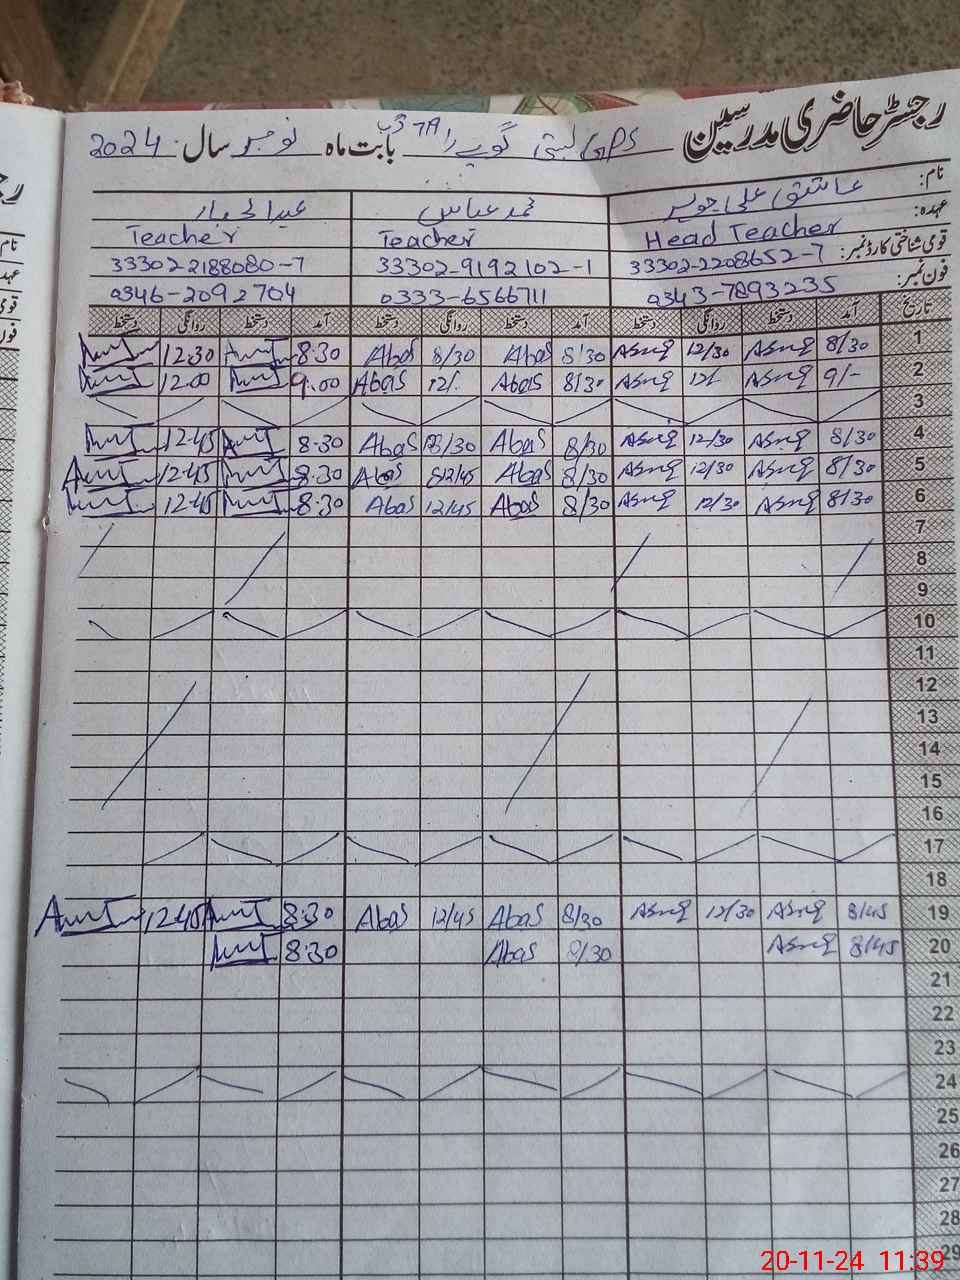 رجسٹر حاضری مدرسین GPS بستی گوپے را 7A/3 بابت ماہ نومبر سال 2024
نام: عاشق علی جوہر محمد عباس عبدالجبار
عہدہ: Head Teacher Teacher Teacher
قومی شناختی کارڈ نمبر: 33302-2208652-7 33302-9192102-1 33302-2188080-7
فون نمبر: 0343-7893235 0333-6566711 0346-2092704
تاریخ آمد دستخط روانگی دستخط آمد دستخط روانگی دستخط آمد دستخط روانگی دستخط
1 8/30 Asmq 12/30 Asmq 8/30 Abas 8/30 Abas 8:30 12:30
2 9/- Asmq 12/- Asmq 8/30 Abas 12/. Abas 9:00 12:00
3
4 8/30 Asmq 12/30 Asmq 8/30 Abas /30 Abas 8:30 12:45
5 8/30 Asmq 12/30 Asmq 8/30 Abas 12/45 Abas 8:30 12:45
6 8/30 Asmq 12/30 Asmq 8/30 Abas 12/45 Abas 8:30 12:45
7
8
9
10
11
12
13
14
15
16
17
18
19 8/45 Asmq 12/30 Asmq 8/30 Abas 12/45 Abas 8:30 12:45
20 8/45 Asmq 8/30 Abas 8:30
21
22
23
24
25
26
27
28
29
20-11-24 11:39